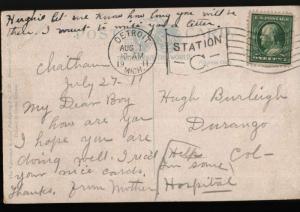 Haszil let me know how long you will be
there. I want to write you a letter.
POST CARD
DETROIT
AUG 1
10-AM
1911
MICH.
STATION
C
Chatham
July 27-11
My Dear Boy
how are you
I hope you are
doing well. I recd
your nice cards,
Thanks, from Mother
Hugh Burleigh
Durango
Col-
Hospital